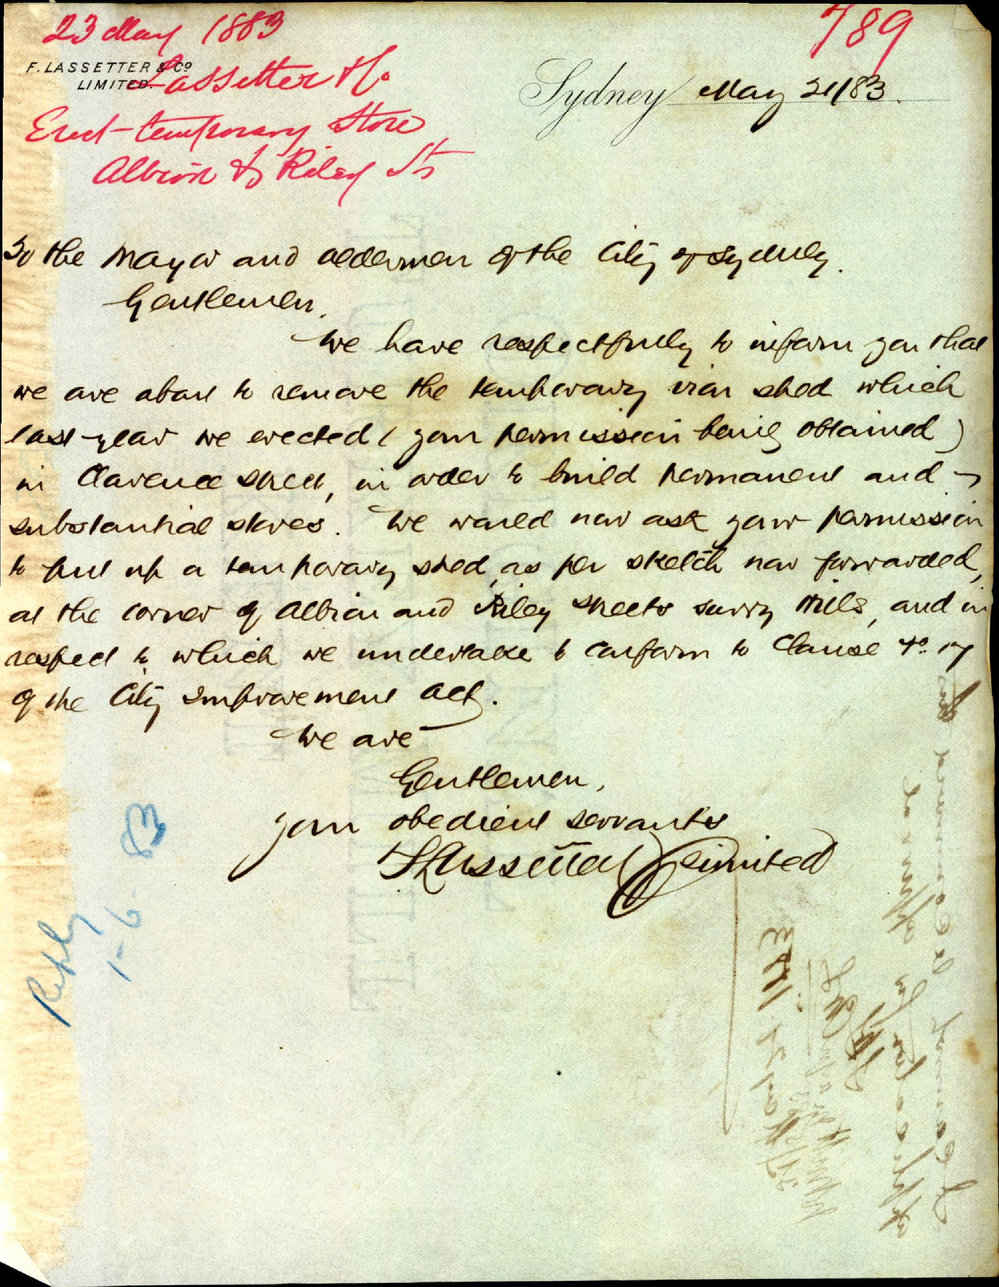 23 May 1883
789
F. LASSETTER & Co
LIMITED.
Lassetter & Co
Erect temporary Store
Albion & Riley Sts
Sydney May 21/83.
To the Mayor and Aldermen of the City of Sydney.
Gentlemen,
We have respectfully to inform you that
we are about to remove the temporary iron shed which
last year we erected (your permission being obtained)
in Clarence Street, in order to build permanent and
substantial stores. We would now ask your permission
to put up a temporary shed, as per sketch now forwarded,
at the corner of Albion and Riley Streets Surry Hills, and in
respect to which we undertake to conform to Clause No. 17
of the City Improvement Act.
We are
Gentlemen,
your obedient servants
F Lassetter & Co Limited
Reply
1-6-83